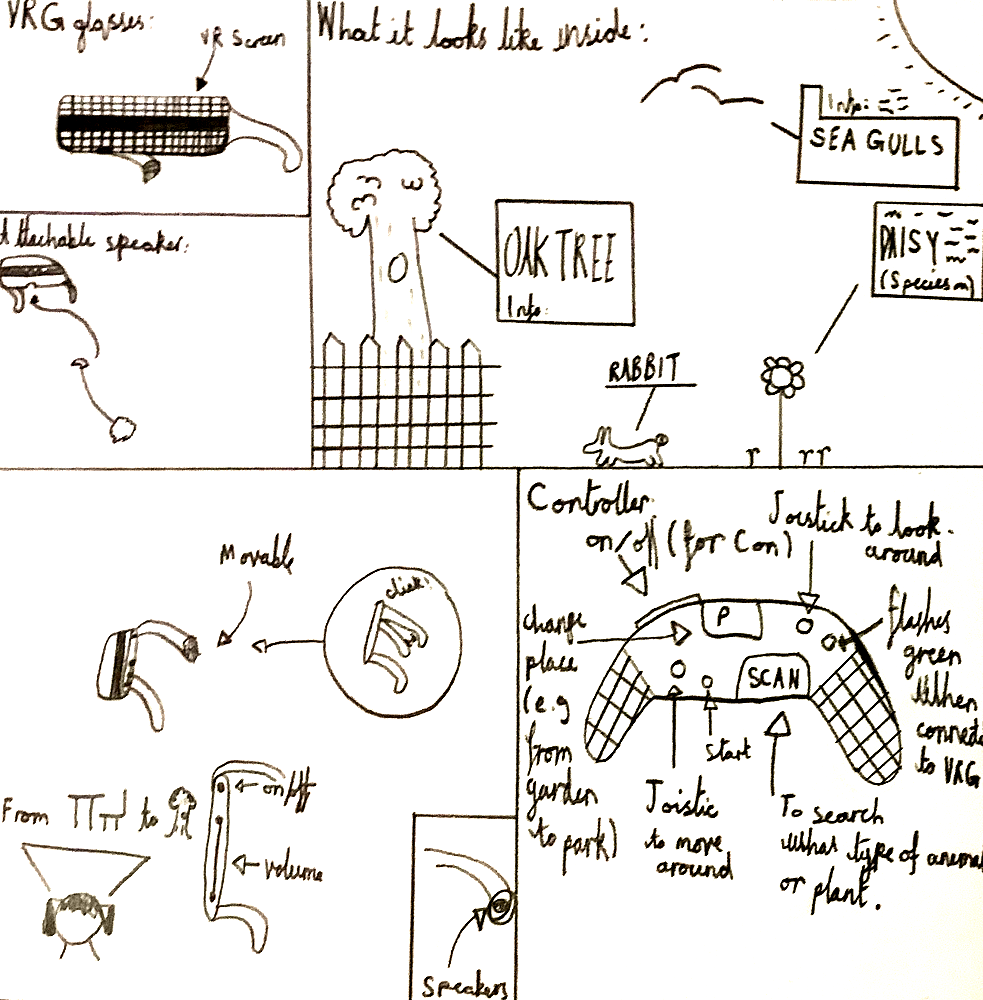 VRG glasses:
VR Screen
Attachable speaker:
What it looks like inside:
Info:
SEA GULLS
OAK TREE
Info:
DAISY
(Species in)
RABBIT
Movable
click!
From
to
on/off
volume
Speakers
Controller:
on/off (for Con)
Joistick to look
around
change
place
(e.g
from
garden
to park)
P
SCAN
flashes
green
when
connected
to VRG
start
Joistic
to move
around
To search
what type of animal
or plant.